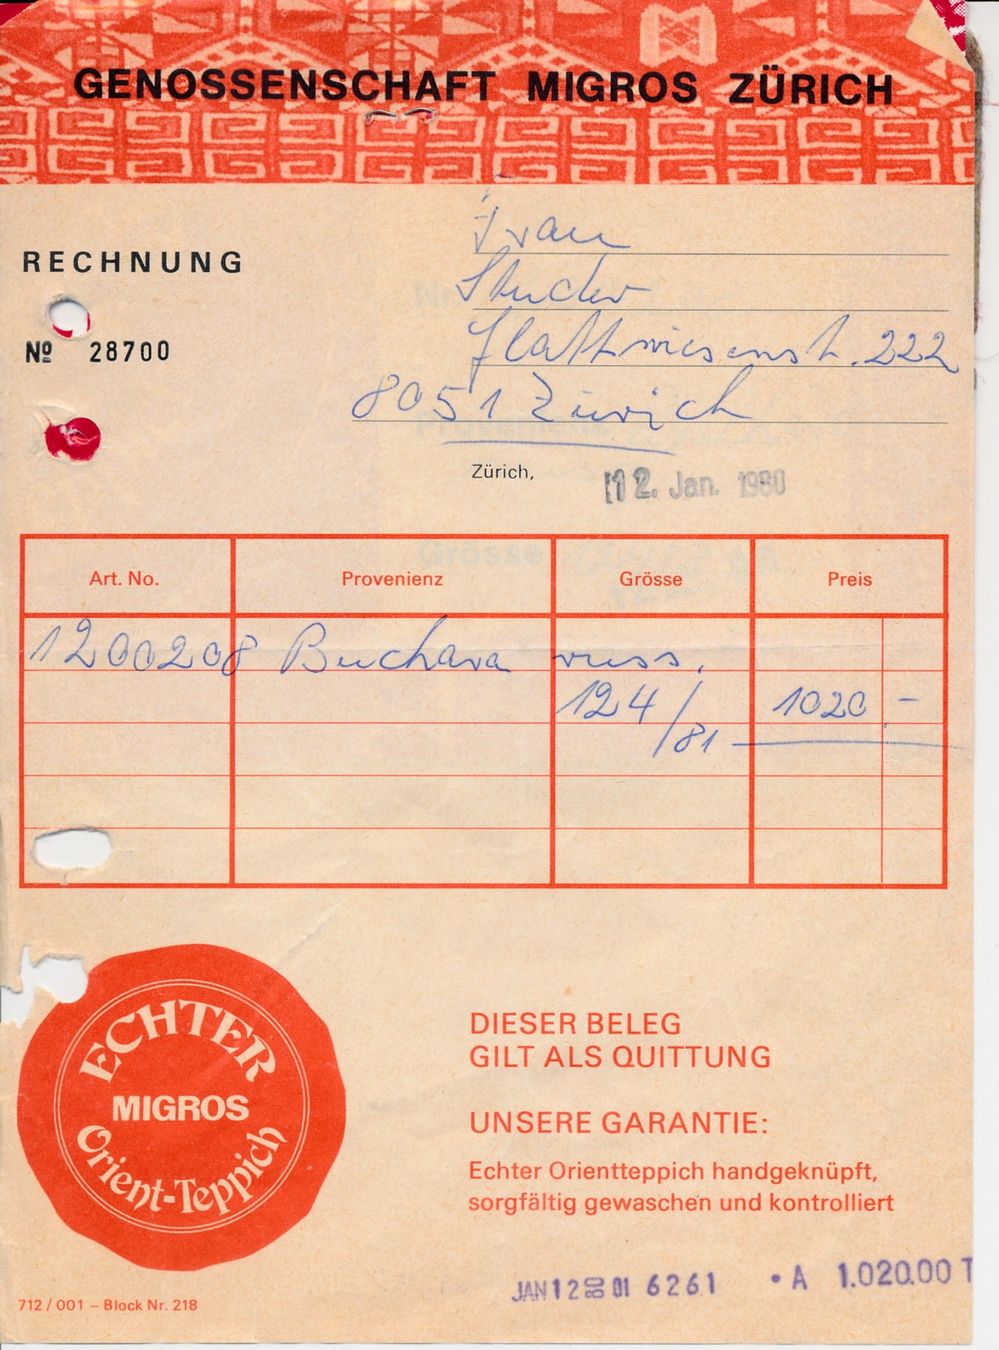 GENOSSENSCHAFT MIGROS ZÜRICH
RECHNUNG
Nº 28700
Frau
Studer
Glattwiesenst. 222
8051 Zürich
Zürich, 12. Jan. 1980
Art. No. Provenienz Grösse Preis
1200208 Buchara russ.
124/81 1020.-
ECHTER
MIGROS
Orient-Teppich
DIESER BELEG
GILT ALS QUITTUNG
UNSERE GARANTIE:
Echter Orientteppich handgeknüpft,
sorgfältig gewaschen und kontrolliert
JAN 12 80 01 6261 • A 1.020.00 T
712 / 001 – Block Nr. 218